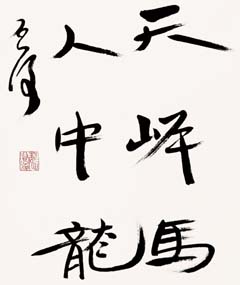 天岸馬
人中龍